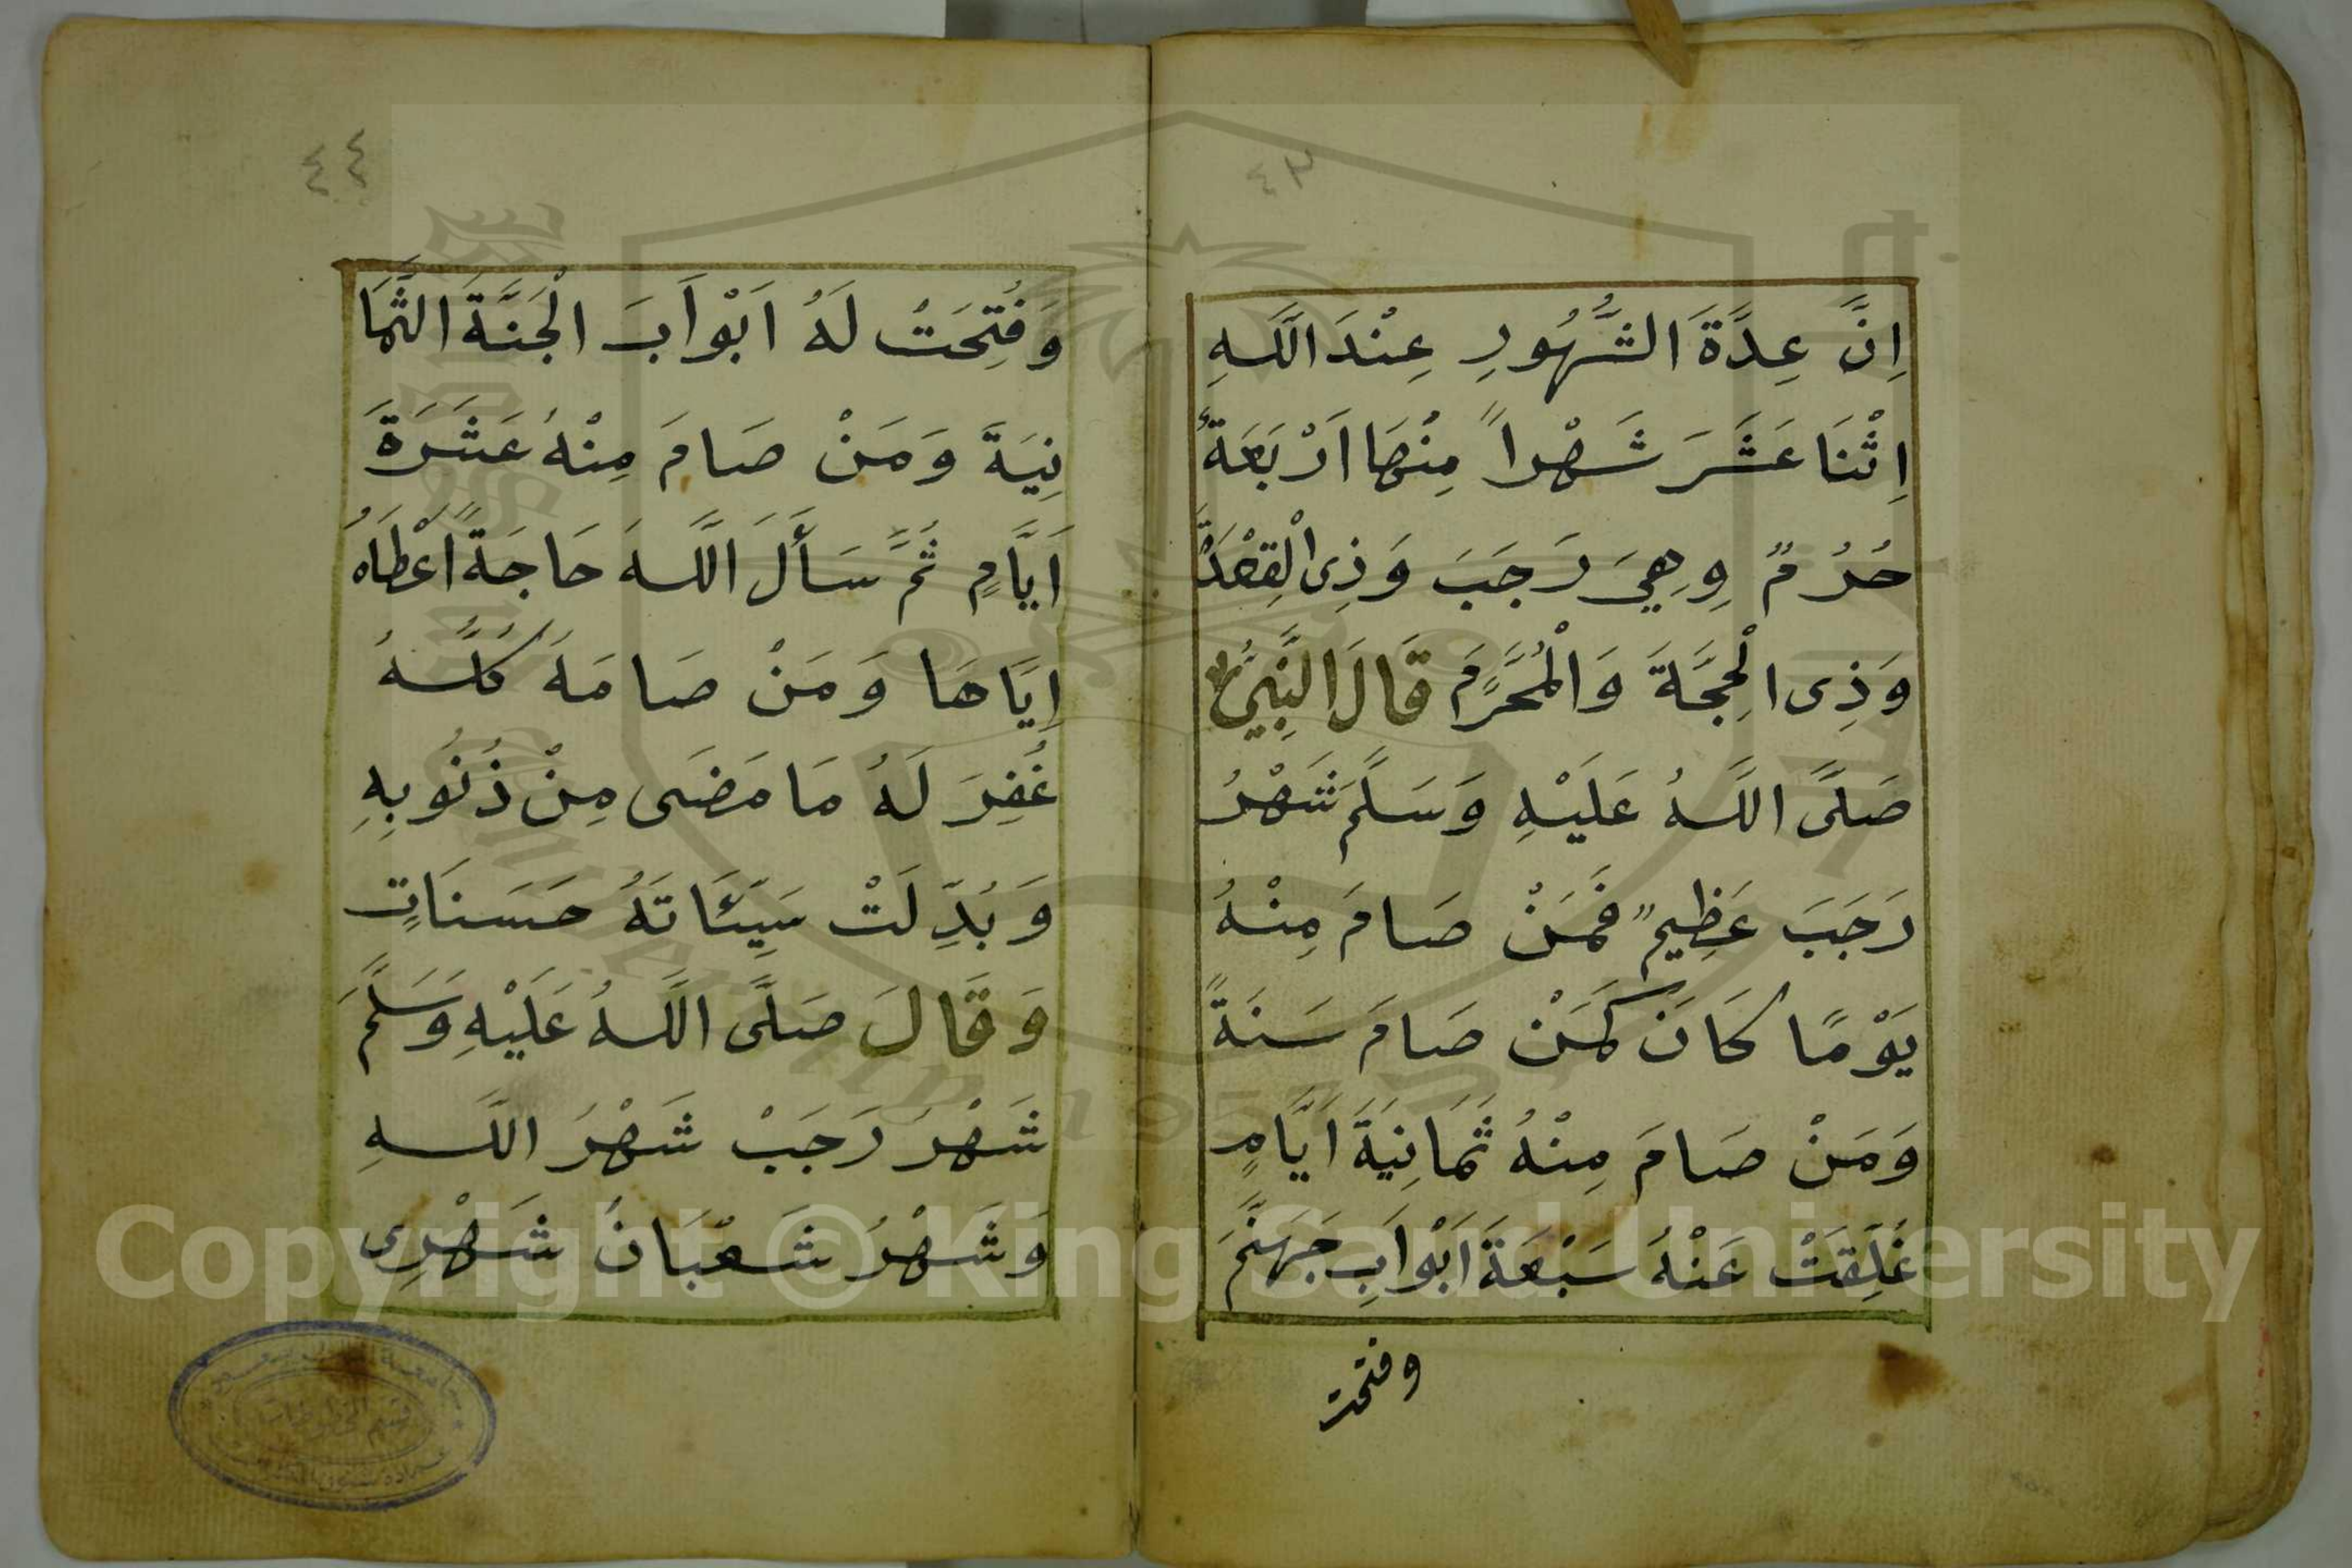 ٤٣
اِنَّ عِدَّةَ الشُّهُورِ عِنْدَ اللّٰهِ
اِثْنَا عَشَرَ شَهْراً مِنْهَا اَرْبَعَةٌ
حُرُمٌ وِهِيَ رَجَبَ وَذِى الْقِعْدَةَ
وَذِى الْحِجَّةَ وَالْمُحَرَّمِ قَالَ النَّبِيُّ
صَلَّى اللّٰهُ عَلَيْهِ وَسَلَّمَ شَهْرُ
رَجَبَ عَظِيمٌ فَمَنْ صَامَ مِنْهُ
يَوْمًا كَانَ كَمَنْ صَامَ سَنَةً
وَمَنْ صَامَ مِنْهُ ثَمَانِيَةَ اَيَّامٍ
غُلِّقَتْ عَنْهُ سَبْعَةَ اَبْوَابِ جَهَنَّمَ
وفتحت
٤٤
وَفُتِحَتْ لَهُ اَبْوَابَ الْجَنَّةَ الثَّمَا
نِيَةَ وَمَنْ صَامَ مِنْهُ عَشَرَةَ
اَيَّامٍ ثُمَّ سَأَلَ اللّٰهَ حَاجَةً اَعْطَاهُ
اِيَّاهَا وَمَنْ صَامَهُ كُلَّهُ
غُفِرَ لَهُ مَا مَضَى مِنْ ذُنُوبِهِ
وَبُدِّلَتْ سَيِّئَاتَهُ حَسَنَاتٍ
وَقَالَ صَلَّى اللّٰهُ عَلَيْهِ وَسَلَّمَ
شَهْرُ رَجَبْ شَهْرُ اللّٰهِ
وَشَهْرُ شَعْبَانُ شَهْرِى
Copyright © King Saud University